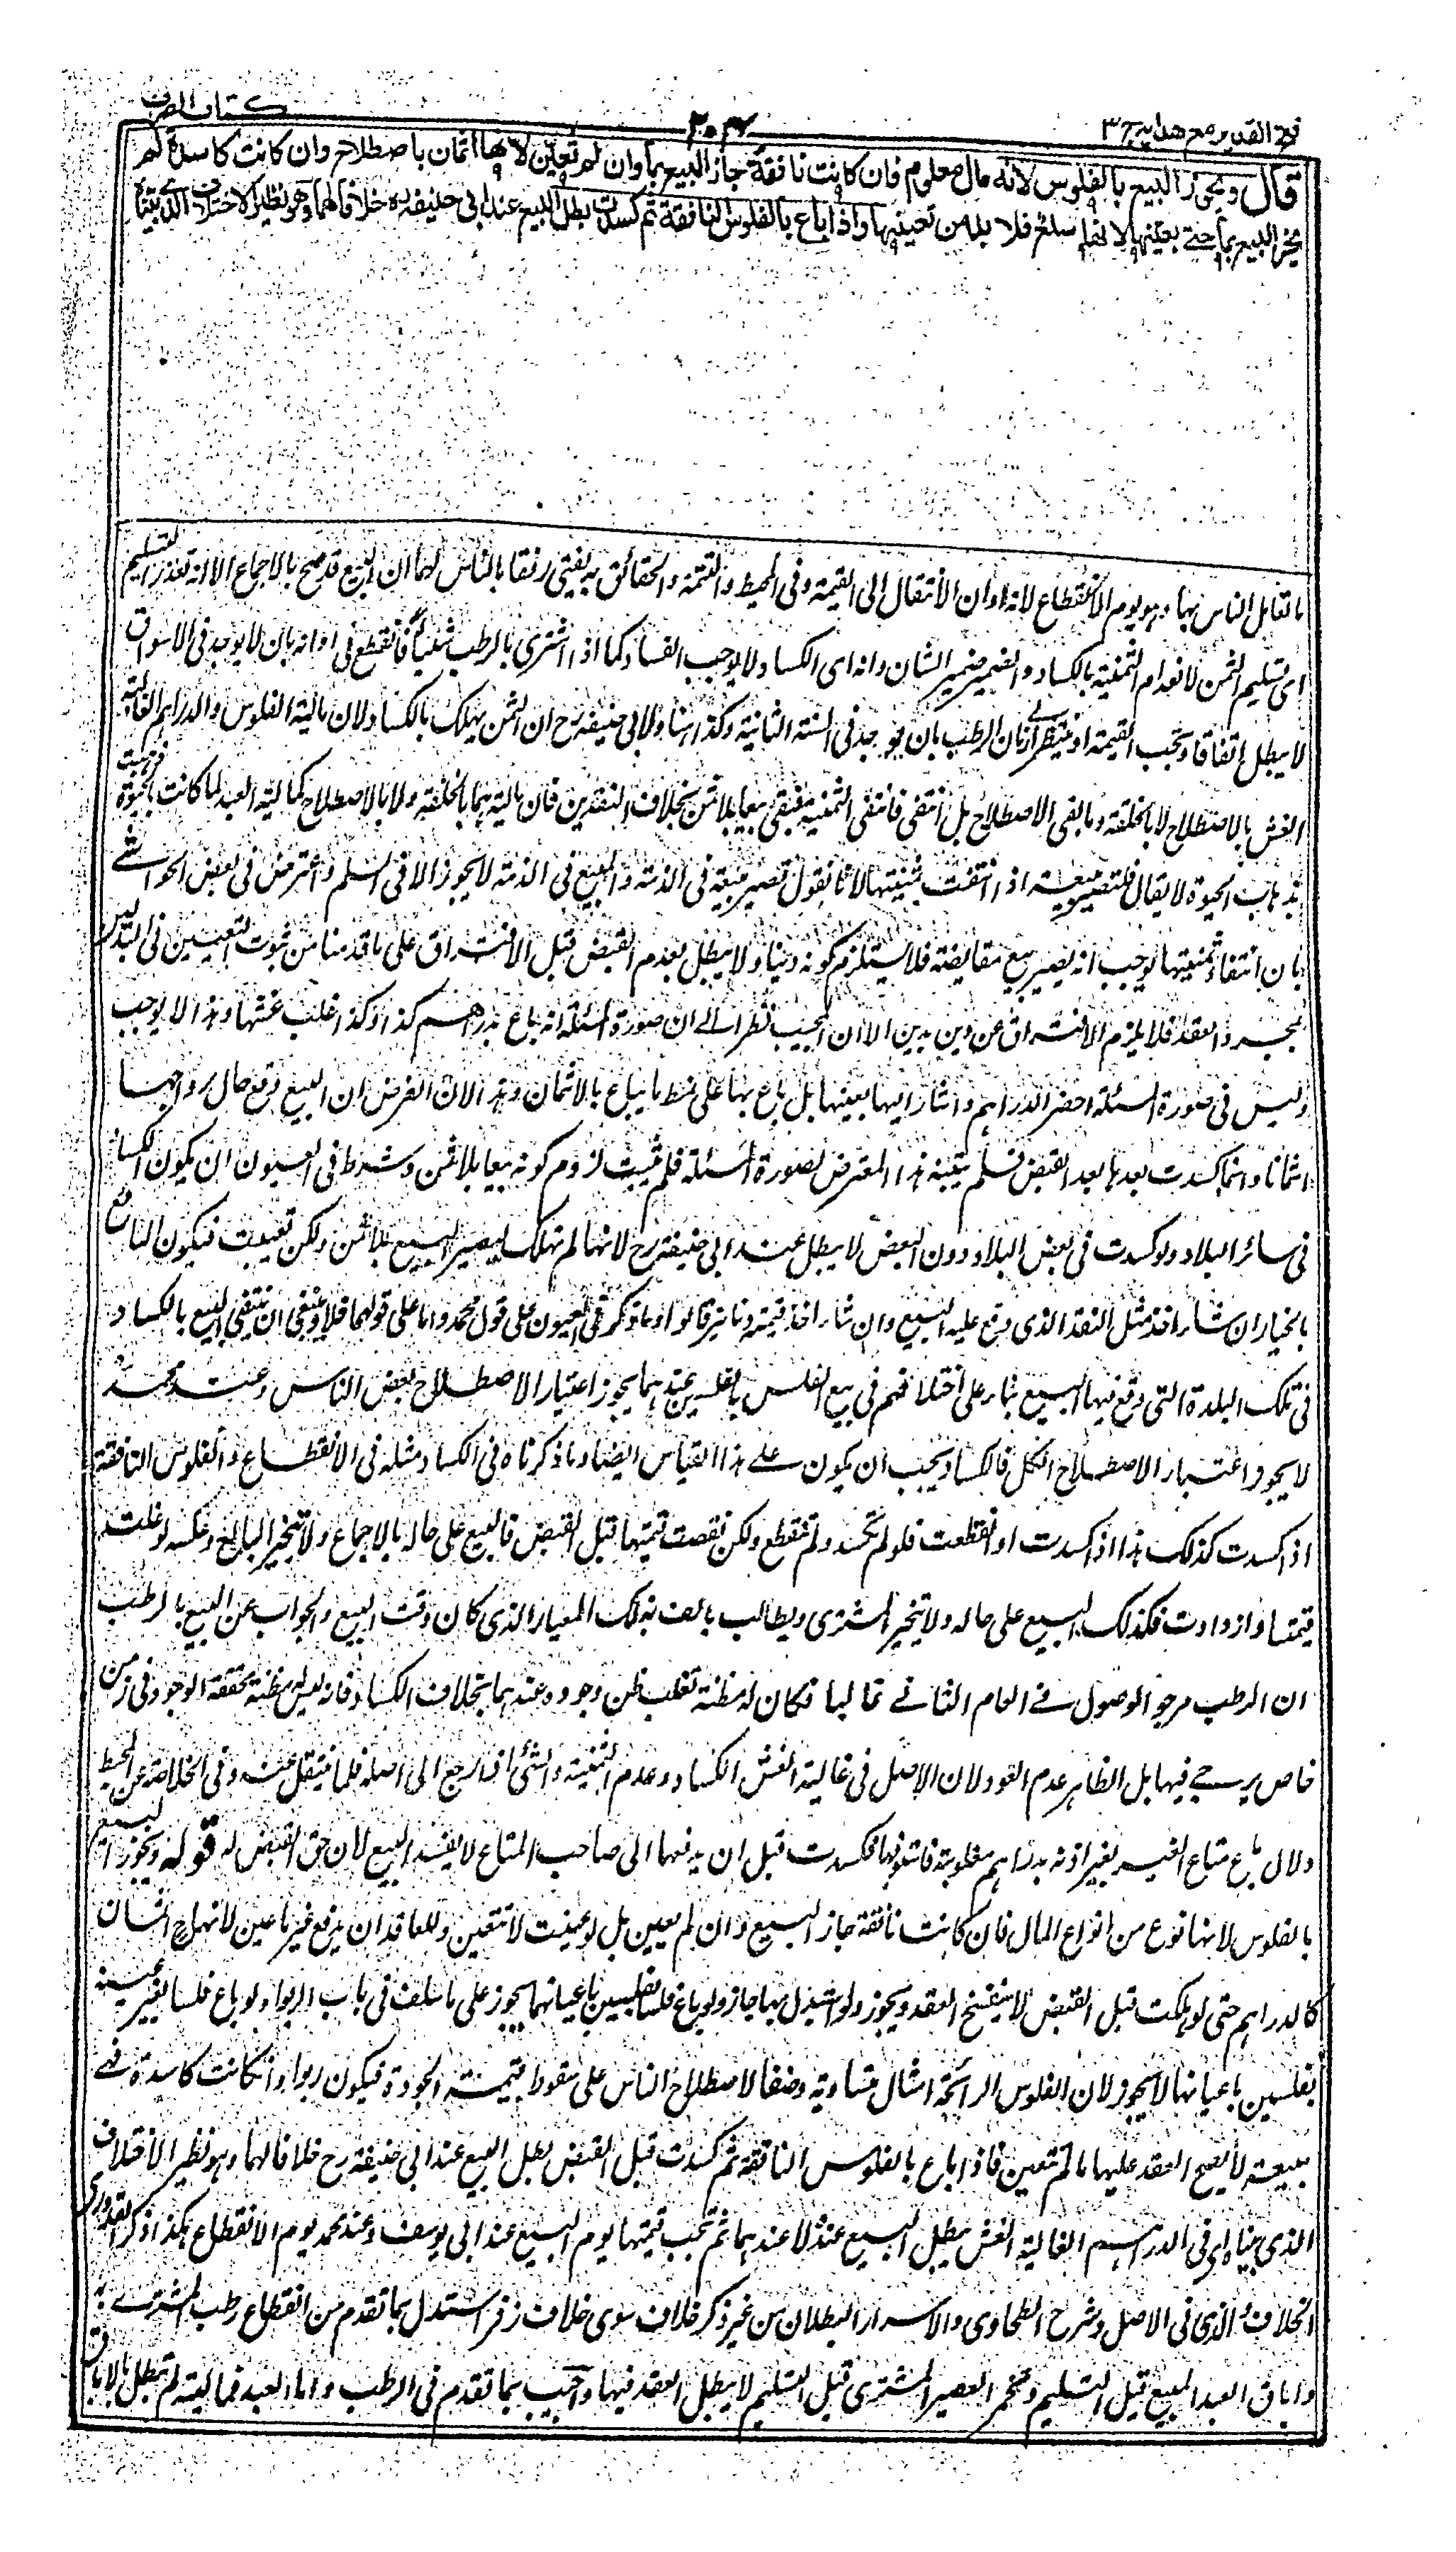 فتح القدير مع هدايه ج ٣
٢٠٣
كتاب الصرف
قال ويجوز البيع بالفلوس لانه مال معلوم فان كانت نافقة جاز البيع بها وان لم تعين لانها اثمان باصطلاح وان كانت كاسدة لم
يجز البيع بها حتى يعينها لانها سلع فلا بد من تعيينها واذا باع بالفلوس النافقة ثم كسدت بطل البيع عند ابي حنيفة ره خلافا لهما وهو نظير الاختلاف الذي بيناه
ما تعامل الناس بها وهو يوم الانقطاع لانه اوان الانتقال الى القيمة وفى المحيط والتتمة والحقائق به يفتى رفقا بالناس لهما ان البيع قد صح بالاجماع الا انه تعذر التسليم
اى تسليم الثمن لانعدام الثمنية بالكساد والضمير ضمير الشان وانه اى الكساد لا يوجب الفساد كما اذا اشترى بالرطب شيئا فانقطع فى اوانه بان لا يوجد فى الاسواق
لا يبطل اتفاقا وتجب القيمة او ينتظر زمان الرطب بان يوجد فى السنة الثانية وكذا هنا ولابى حنيفة رح ان الثمن يهلك بالكساد لان مالية الفلوس والدراهم الغالبة
الغش بالاصطلاح لا بالخلقة وما بقى الاصطلاح بل انتفى فانتفى الثمنية فبقى بيعا بلا ثمن بخلاف النقدين فان ماليتهما بالخلقة ولا بالاصطلاح كمالية العبد لما كانت بالحيوة فذهبت
بذهاب الحيوة لا يقال فلتصر مبيعة اذا انتفت ثمنيتها لانا نقول تصير مبيعة فى الذمة والمبيع فى الذمة لا يجوز الا فى السلم واعترض فى بعض الحواشى
بان انتفاء ثمنيتها يوجب انه يصير بيع مقايضة فلا يستلزم كونه دينا ولا يبطل بعدم القبض قبل الافتراق على ما قدمنا من ثبوت التعيين فى البدلين
بمجرد العقد فلا يلزم الافتراق عن دين بدين الا ان المجيب نظر الى ان صورة المسئلة انه باع بدراهم كذا وكذا غلب غشها وهذا لا يوجب
وليس فى صورة المسئلة احضر الدراهم واشار اليها بعينها بل باع بها على نمط ما يباع بالاثمان وهذا لان الفرض ان البيع وقع حال رواجها
اثمانا وانما كسدت بعدها بعد القبض فلم يتنبه هذا المعترض لصورة المسئلة فلم يثبت لزوم كونه بيعا بلا ثمن وشرط فى العيون ان يكون الكساد
فى سائر البلاد ولو كسدت فى بعض البلاد دون البعض لا يبطل عند ابى حنيفة رح لانها لم تهلك ليصير البيع بلا ثمن ولكن تعيبت فيكون البائع
بالخيار ان شاء اخذ مثل النقد الذى وقع عليه البيع وان شاء اخذ قيمته دنانير قالوا وما ذكر فى العيون على قول محمد واما على قولهما فلا وينبغى ان ينتفى البيع بالكساد
فى تلك البلدة التى وقع فيها البيع بناء على اختلافهم فى بيع الفلس بالفلسين عندهما يجوز اعتبار الاصطلاح بعض الناس وعند محمد
لا يجوز اعتبار الاصطلاح الكل فالكساد يجب ان يكون على هذا القياس ايضا وما ذكرناه فى الكساد مثله فى الانقطاع والفلوس النافقة
اذا كسدت كذلك هذا اذا كسدت او انقطعت فلو لم تكسد ولم تنقطع ولكن نقصت قيمتها قبل القبض فالبيع على حاله بالاجماع ولا يتخير البائع وعكسه لو غلت
قيمتها وازدادت فكذلك البيع على حاله ولا يتخير المشترى ويطالب بالف بذلك المعيار الذى كان وقت البيع والجواب عن البيع بالرطب
ان الرطب مرجو الوصول فى العام الثانى غالبا فكان له مظنة تغلب ظن وجوده عندهما بخلاف الكساد فانه ليس له مظنة محققة الوجود فى زمن
خاص يرجى فيها بل الظاهر عدم العود لان الاصل فى غالبة الغش الكساد وعدم الثمنية والشئ اذا رجع الى اصله فلما ينتقل عنه وفى الخلاصة عن المحيط
دلال باع متاع الغير بغير اذنه بدراهم معلومة فاستوفاها فكسدت قبل ان يدفعها الى صاحب المتاع لا يفسد البيع لان حق القبض له قوله ويجوز البيع
بالفلوس لانها نوع من انواع المال فان كانت نافقة جاز البيع وان لم يعين بل لو عينت لا تتعين وللعاقد ان يدفع غير ما عين لانها ح اثمان
كالدراهم حتى لو هلكت قبل القبض لا ينفسخ العقد ويجوز ولو استبدل بها جاز ولو باع فلسا بفلسين باعيانهما يجوز على ما سلف فى باب الربوا ولو باع فلسا بغير عينه
بفلسين باعيانهما لا يجوز لان الفلوس الرائجة امثال متساوية وضعا لاصطلاح الناس على سقوط قيمة الجودة فيكون ربوا وان كانت كاسدة فهى
مبيعة لا يصح العقد عليها ما لم تتعين فاذا باع بالفلوس النافقة ثم كسدت قبل القبض بطل البيع عند ابى حنيفة رح خلافا لهما وهو نظير الاختلاف
الذى بيناه اى فى الدراهم الغالبة الغش يبطل البيع عنده لا عندهما ثم تجب قيمتها يوم البيع عند ابى يوسف وعند محمد يوم الانقطاع هكذا ذكر القدورى
الخلاف والذى فى الاصل وشرح الطحاوى والاسرار البطلان من غير ذكر خلاف سوى خلاف زفر استدل بما تقدم من انقطاع رطب المشترى به
واباق العبد المبيع قبل التسليم وتخمر العصير المشترى قبل التسليم لا يبطل العقد فيها واجيب بما تقدم فى الرطب واما العبد فماليته لم تبطل بالاباق